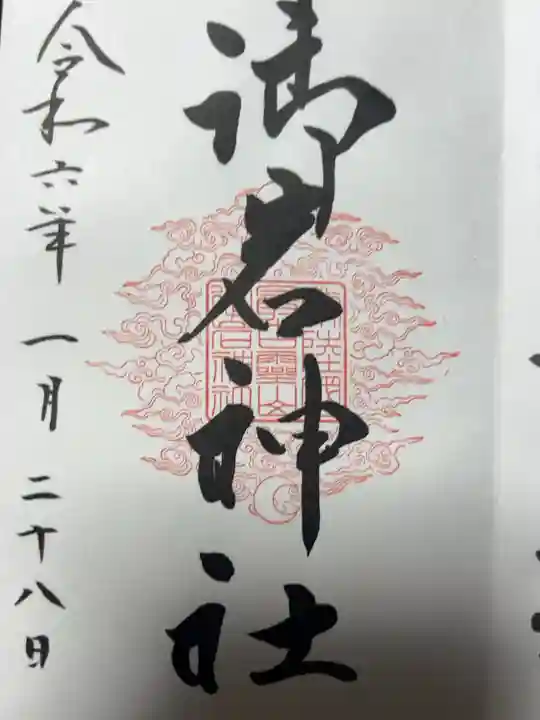 御岩神社
令和六年 一月 二十八日